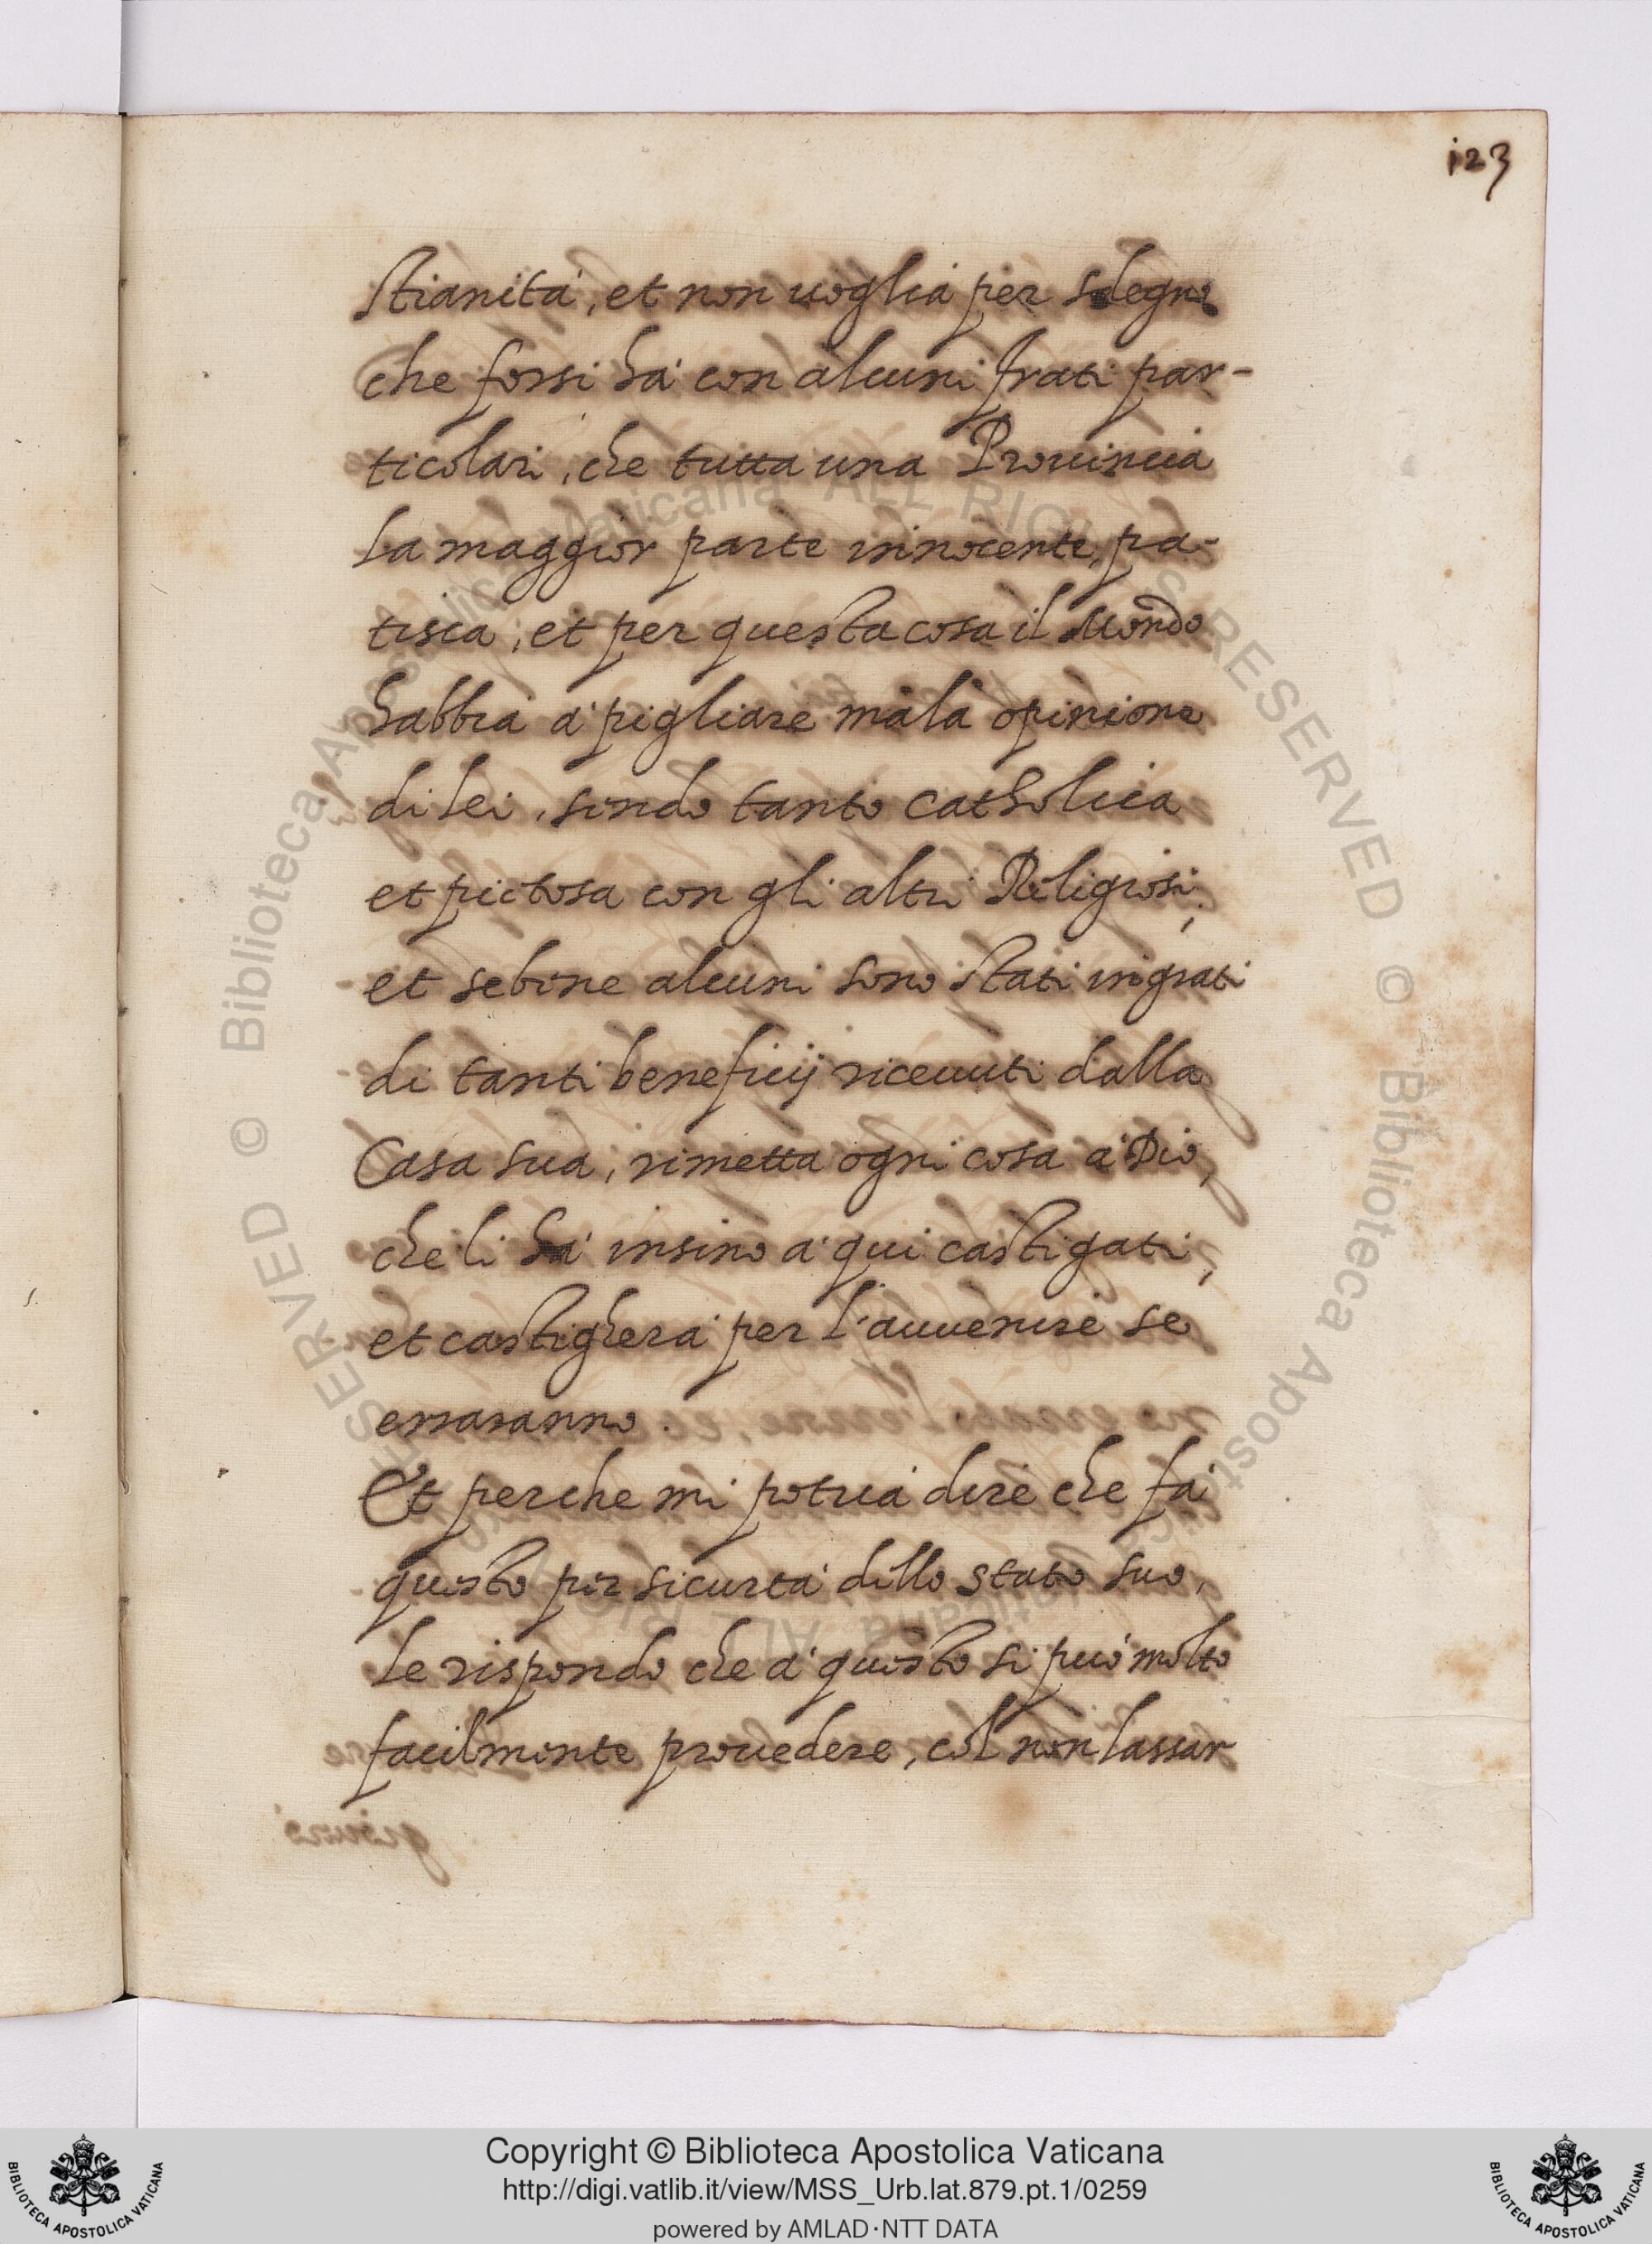 i23
stianità, et non uoglia per sdegno
che forsi hà con alcuni frati par-
ticolari, che tutta una Prouincia
La maggior parte innocente, pa-
tisca, et per questa cosa il Mondo
habbia à pigliare mala opinione
di Lei, sendo tanto Catholica
et pietosa con gli altri Religiosi;
et sebene alcuni sono stati ingrati
di tanti beneficij riceuuti dalla
Casa sua, rimetta ogni cosa à Dio,
che li hà insino à qui castigati,
et castigherà per l'auuenire se
erraranno.
Et perche mi potria dire che fà
questo per sicurtà dello stato suo,
Le rispondo che à questo si può molto
facilmente prouedere, col non lassar
© Biblioteca Apostolica Vaticana ALL RIGHTS RESERVED
© Biblioteca Apostolica Vaticana ALL RIGHTS RESERVED
Copyright © Biblioteca Apostolica Vaticana
http://digi.vatlib.it/view/MSS_Urb.lat.879.pt.1/0259
powered by AMLAD·NTT DATA
BIBLIOTECA APOSTOLICA VATICANA
BIBLIOTECA APOSTOLICA VATICANA